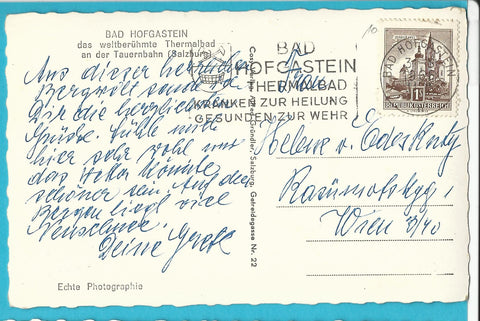 BAD HOFGASTEIN
das weltberühmte Thermalbad
an der Tauernbahn (Salzburg)
Aus dieser herrlichen
Bergwelt sende ich
Dir die herzlichsten
Grüße. Fühle mich
hier sehr wohl nur
das Wetter könnte
schöner sein. Auf den
Bergen liegt viel
Neuschnee.
Deine Grete
Echte Photographie
Gründler, Salzburg, Getreidegasse Nr. 22
BAD
HOFGASTEIN
THERMALBAD
KRANKEN ZUR HEILUNG
GESUNDEN ZUR WEHR
BAD HOFGASTEIN
REPUBLIK ÖSTERREICH
Frau
Helene v.
Rasumofskyg. 1
Wien 3/40